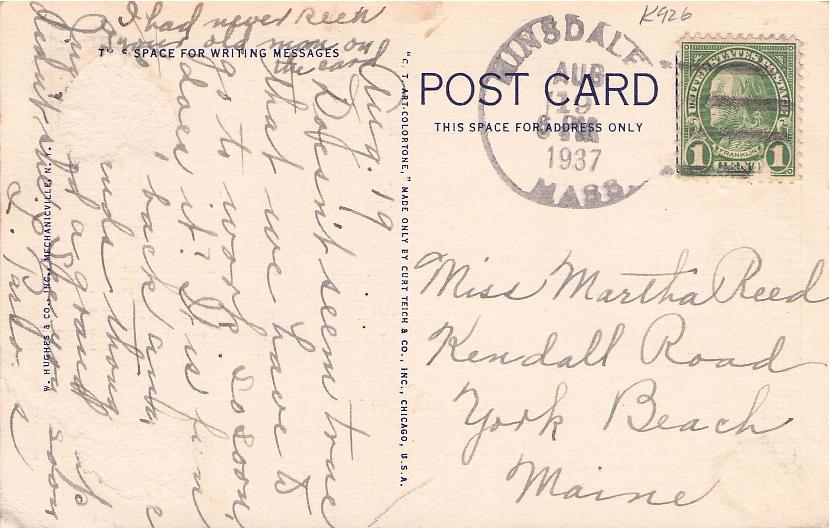 K926
HINSDALE
AUG
19
6 PM
1937
MASS.
UNITED STATES POSTAGE
FRANKLIN
1 CENT 1
POST CARD
THIS SPACE FOR ADDRESS ONLY
Miss Martha Reed
Kendall Road
York Beach
Maine
"C. T. ART-COLORTONE," MADE ONLY BY CURT TEICH & CO., INC., CHICAGO, U.S.A.
SPACE FOR WRITING MESSAGES
I had never seen
old man on
the card
Aug. 19
Doesn't seem true
that we have to
go to work so soon,
does it? It is fun
back and
and a grand
see you soon
W. HUGHES & CO., INC., MECHANICVILLE, N. Y.